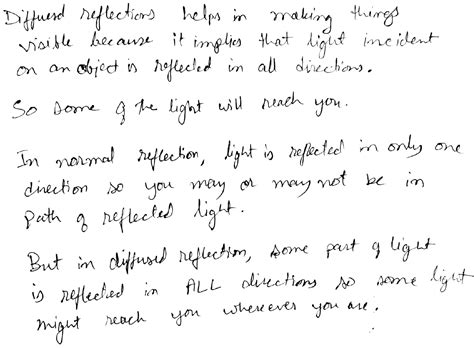 Diffused reflections helps in making things
visible because it implies that light incident
on an object is reflected in all directions.
So some of the light will reach you.
In normal reflection, light is reflected in only one
direction so you may or may not be in
path of reflected light.
But in diffused reflection, some part of light
is reflected in ALL directions so some light
might reach you whereever you are.